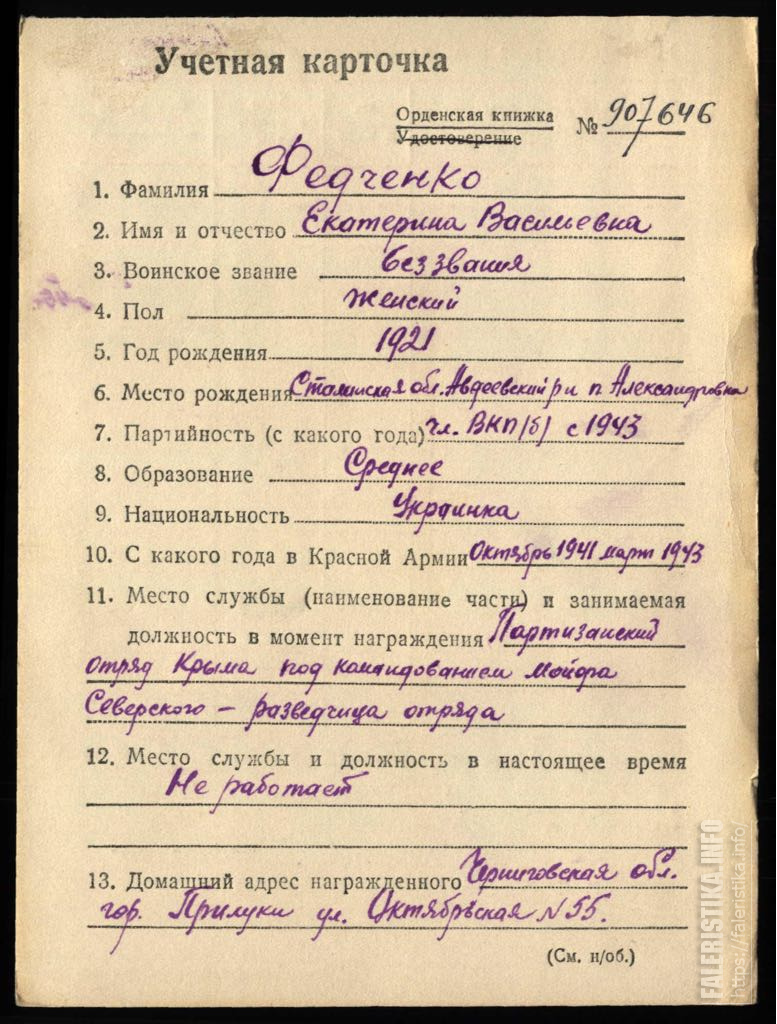 Учетная карточка
Орденская книжка
Удостоверение
№ 907646
1. Фамилия Федченко
2. Имя и отчество Екатерина Васильевна
3. Воинское звание без звания
4. Пол женский
5. Год рождения 1921
6. Место рождения Сталинская обл. Авдеевский р-н п. Александровка
7. Партийность (с какого года) чл. ВКП/б/ с 1943
8. Образование Среднее
9. Национальность Украинка
10. С какого года в Красной Армии Октябрь 1941 март 1943
11. Место службы (наименование части) и занимаемая
должность в момент награждения Партизанский
отряд Крыма под командованием Майора
Северского – разведчица отряда
12. Место службы и должность в настоящее время
Не работает
13. Домашний адрес награжденного Черниговская обл.
гор. Прилуки ул. Октябрьская N 55.
(См. н/об.)
FALERISTIKA.INFO
https://faleristika.info/